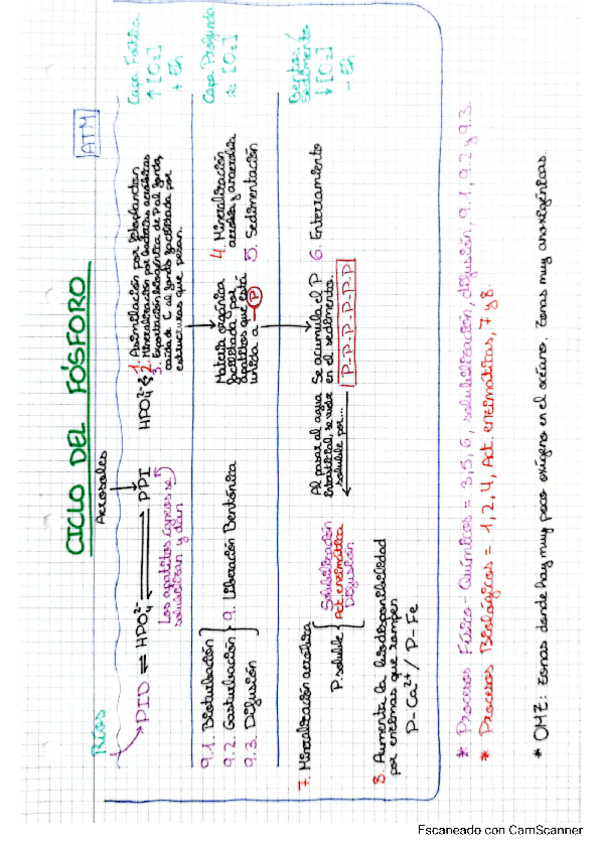 CICLO DEL FÓSFORO
ATM
Ríos
Aerosoles
Capa Fótica
↑[O₂]
+ Eh
PID ⇌ HPO₄²⁻ ⇌ PPI
Los apatitos ígneos se
solubilizan y dan
HPO₄²⁻
1. Asimilación por fitoplancton
2. Mineralización por bacterias aeróbicas
3. Exportación biogénica de P al fondo,
caída de C al fondo facilitada por
estructuras que pesan.
Capa Profunda
± [O₂]
9.1. Bioturbación
9.2. Gasturbación
9.3. Difusión
9. Liberación Bentónica
Materia orgánica
facilitada por
apatitos que está
unida a -P
4. Mineralización
aerobia y anaerobia
5. Sedimentación
Bentos /
Sedimento
↓[O₂]
- Eh
7. Mineralización aeróbica
P. soluble
Solubilización
Act. enzimática
Difusión
Al pasar al agua
intersticial, se vuelve
soluble por...
Se acumula el P
en el sedimento.
P-P-P-P-P-P
6. Enterramiento
8. Aumenta la biodisponibilidad
por enzimas que rompen
P-Ca²⁺ / P-Fe
* Procesos Físico-Químicos = 3, 5, 6, solubilización, difusión, 9.1, 9.2 y 9.3.
* Procesos Biológicos = 1, 2, 4, Act. enzimáticas, 7 y 8.
* OMZ: Zonas donde hay muy poco oxígeno en el océano. Zonas muy anoxigénicas.
Escaneado con CamScanner